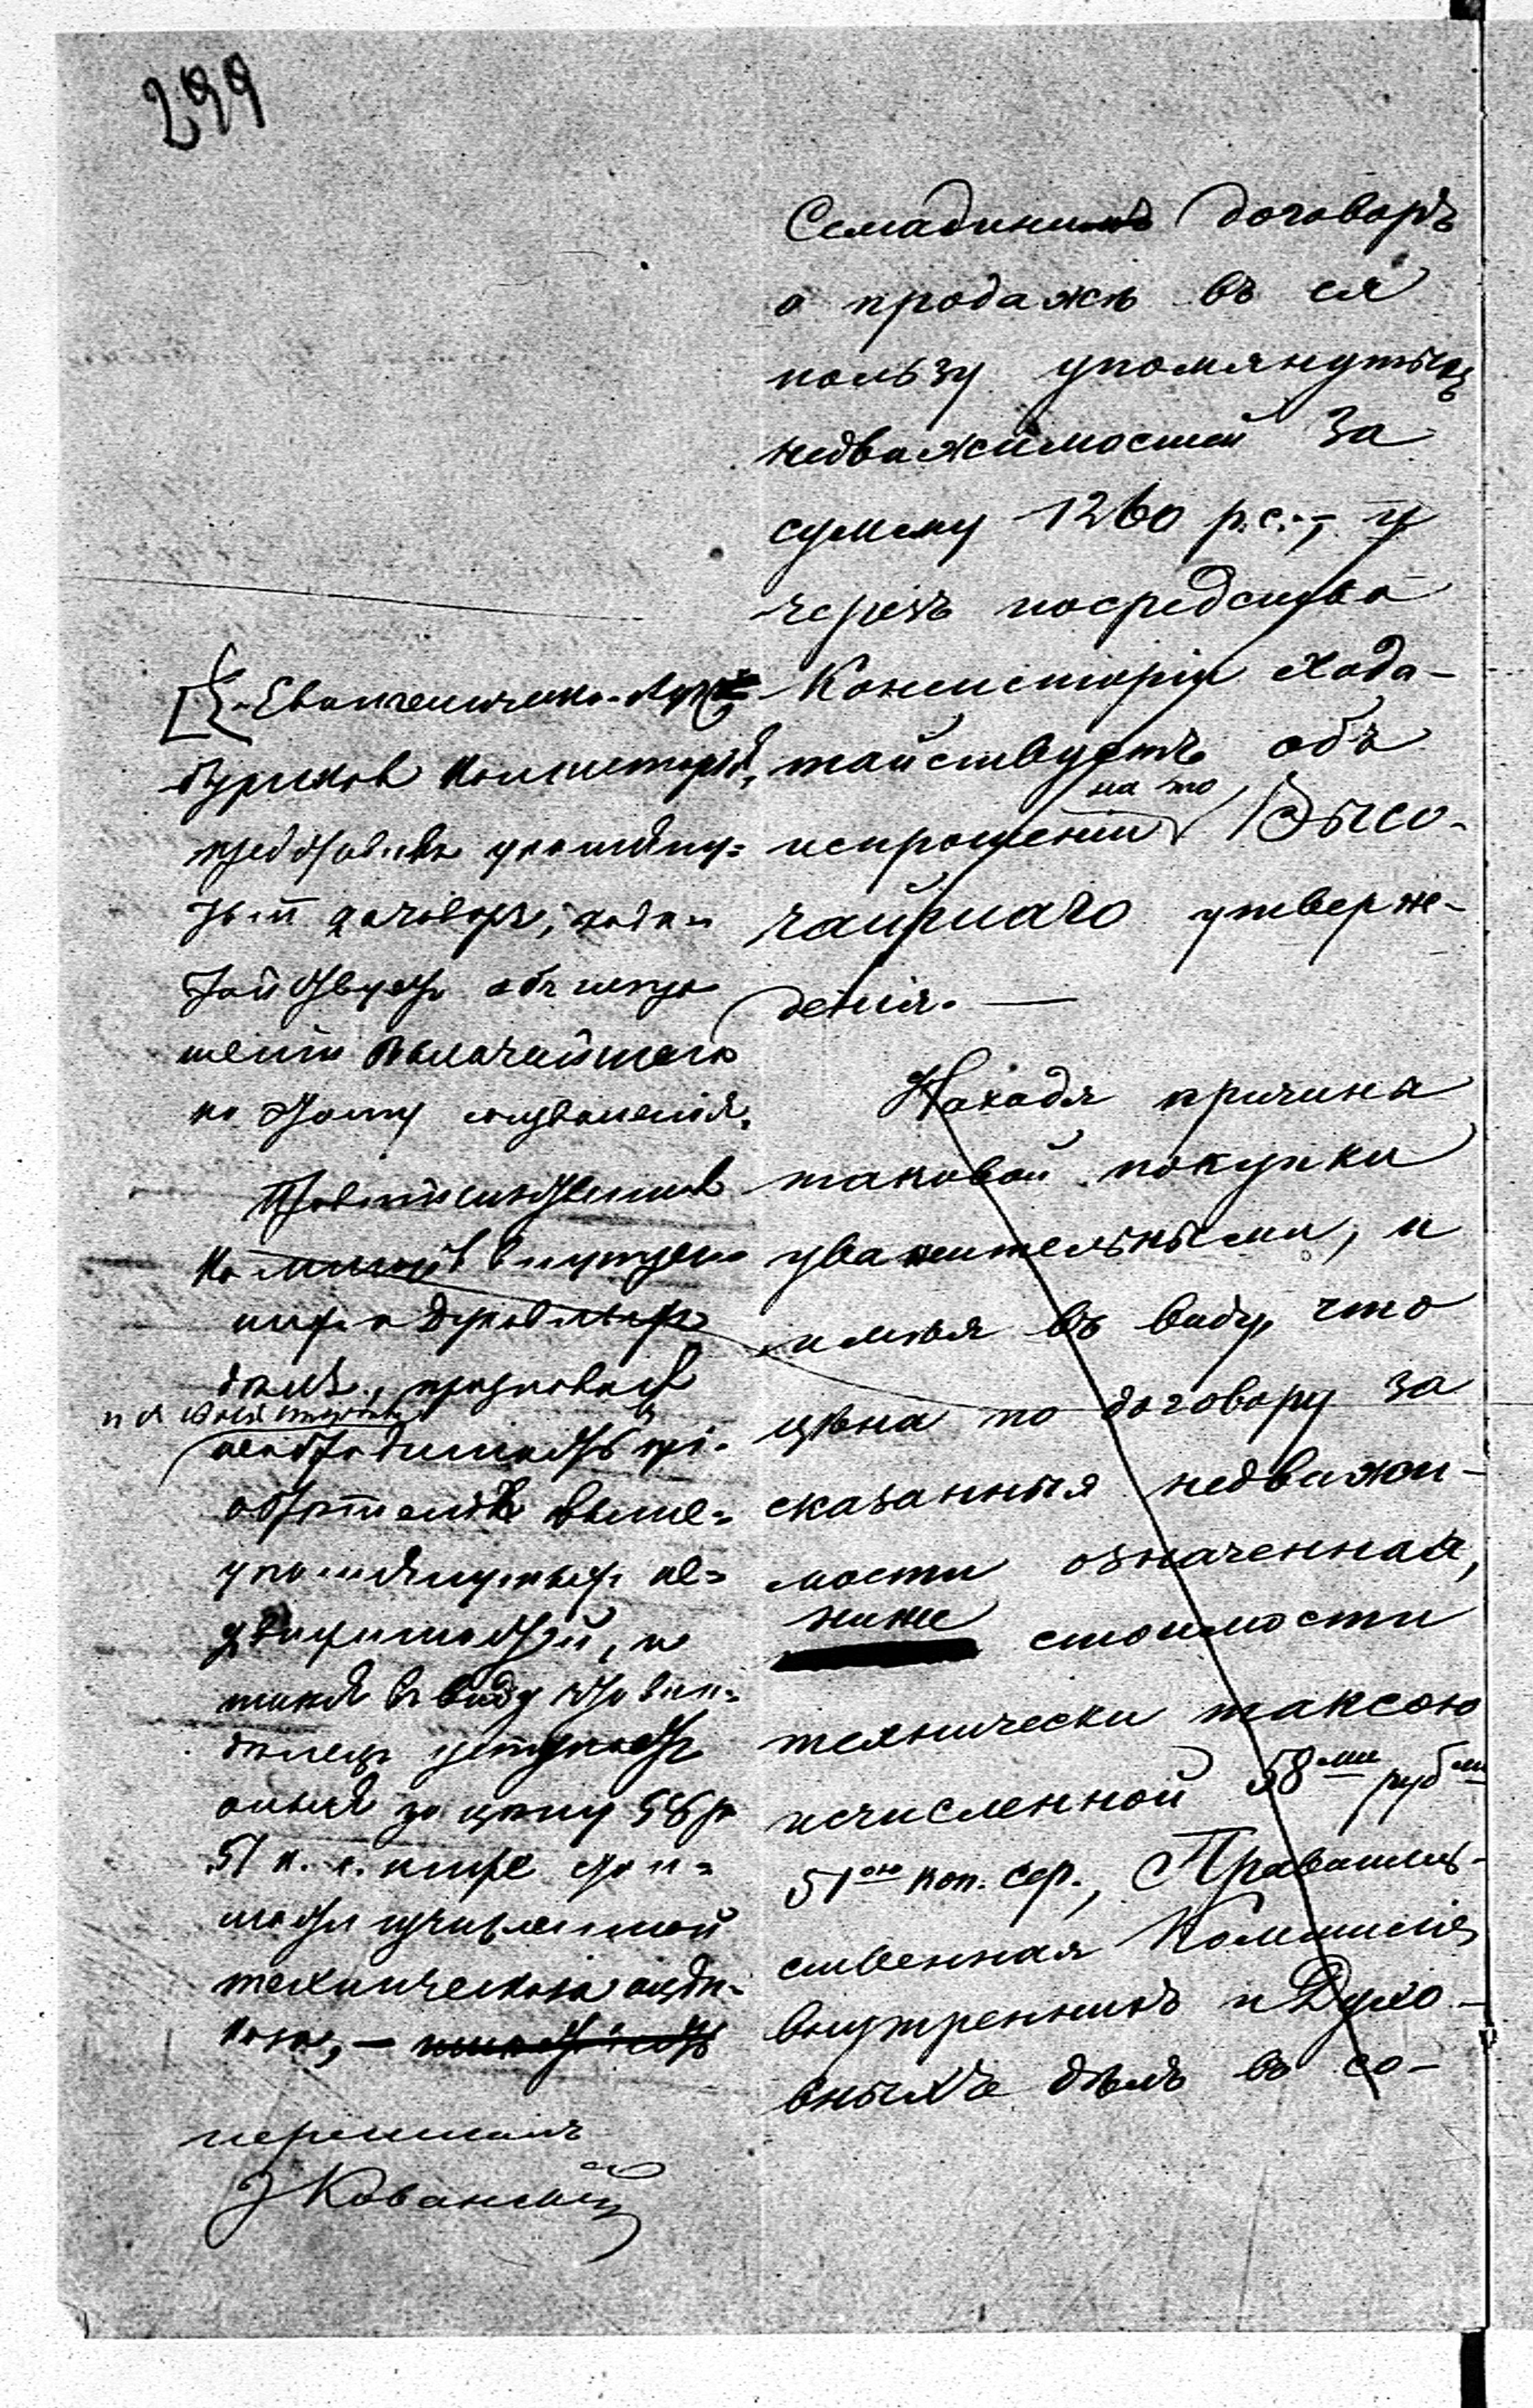 299
Семадини договоръ
о продажѣ въ ея
пользу упомянутыхъ
недвижимостей за
сумму 1260 р.с., и
чрезъ посредство
Консисторіи хода-
тайствуетъ объ
испрошеніи на то Высо-
чайшаго утверж-
денія. —
Находя причины
таковой покупки
уважительными, и
имѣя въ виду, что
цѣна по договору за
сказанныя недвижи-
мости означенная,
ниже
стоимости
технически таксою
исчисленной 58ми рубми
51ою коп. сер., Правитель-
ственная Коммисія
внутреннихъ и Духо-
вныхъ дѣлъ въ со-
Евангелическо-Аугс-
бургская Консисторія,
представивъ упомяну-
тый договоръ, хода-
тайствуетъ объ испро-
шеніи Высочайшаго
по этому соизволенія.
Правительственная
Коммисія внутрен-
нихъ и Духовныхъ
дѣлъ, признавая
и съ своей стороны
необходимость прі-
обрѣтенія выше-
упомянутыхъ не-
движимостей, и
имѣя въ виду что вла-
дѣлецъ уступаетъ
оныя за цѣну 58 р
51 к. с. ниже стои-
мости исчисленной
техническою оцѣн-
кою, —
переписалъ